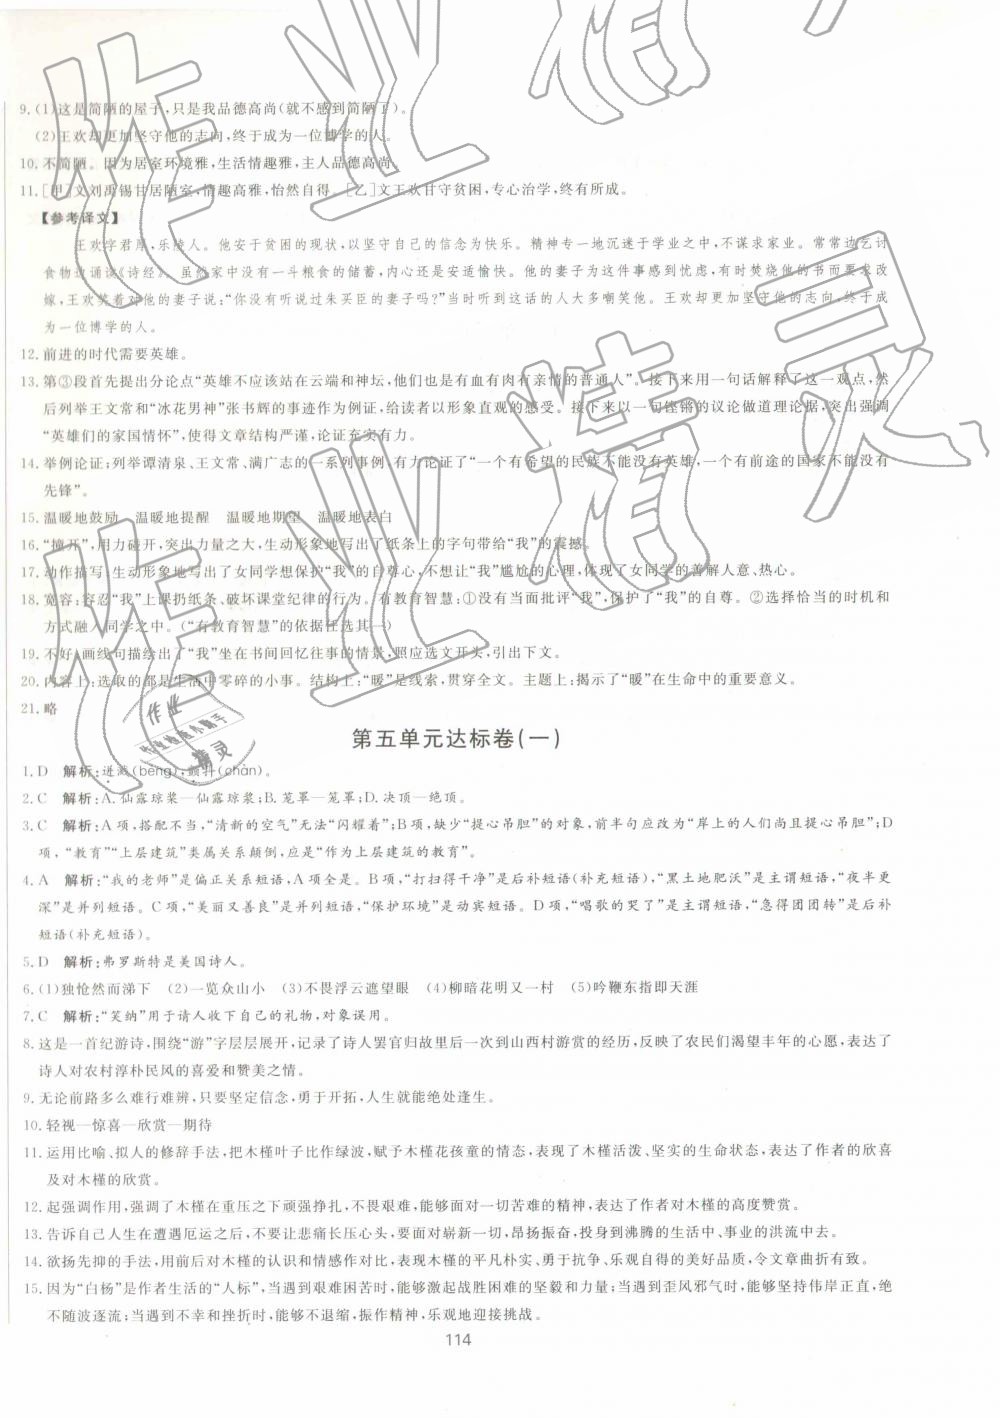 9. (1)这是简陋的屋子,只是我品德高尚(就不感到简陋了)。
(2)王欢却更加坚守他的志向,终于成为一位博学的人。
10. 不简陋。因为居室环境雅,生活情趣雅,主人品德高尚。
11. [甲]文刘禹锡甘居陋室,情趣高雅,怡然自得。[乙]文王欢甘守贫困,专心治学,终有所成。
【参考译文】
王欢字君厚,乐陵人。他安于贫困的现状,以坚守自己的信念为快乐。精神专一地沉迷于学业之中,不谋求家业。常常边乞讨
食物边诵读《诗经》。虽然家中没有一斗粮食的储蓄,内心还是安适愉快。他的妻子为这件事感到忧虑,有时焚烧他的书而要求改
嫁,王欢笑着对他的妻子说:“你没有听说过朱买臣的妻子吗?”当时听到这话的人大多嘲笑他。王欢却更加坚守他的志向,终于成
为一位博学的人。
12. 前进的时代需要英雄。
13. 第③段首先提出分论点“英雄不应该站在云端和神坛,他们也是有血有肉有亲情的普通人”。接下来用一句话解释了这一观点,然
后列举王文常和“冰花男神”张书辉的事迹作为例证,给读者以形象直观的感受。接下来以一句铿锵的议论做道理论据,突出强调
“英雄们的家国情怀”,使得文章结构严谨,论证充实有力。
14. 举例论证;列举谭清泉、王文常、满广志的一系列事例,有力论证了“一个有希望的民族不能没有英雄,一个有前途的国家不能没有
先锋”。
15. 温暖地鼓励 温暖地提醒 温暖地期望 温暖地表白
16. “撞开”,用力碰开,突出力量之大,生动形象地写出了纸条上的字句带给“我”的震撼。
17. 动作描写;生动形象地写出了女同学想保护“我”的自尊心,不想让“我”尴尬的心理,体现了女同学的善解人意、热心。
18. 宽容:容忍“我”上课扔纸条、破坏课堂纪律的行为。有教育智慧:①没有当面批评“我”,保护了“我”的自尊。②选择恰当的时机和
方式融入同学之中。(“有教育智慧”的依据任选其一)
19. 不好,画线句描绘出了“我”坐在书间回忆往事的情景,照应选文开头,引出下文。
20. 内容上:选取的都是生活中零碎的小事。结构上:“暖”是线索,贯穿全文。主题上:揭示了“暖”在生命中的重要意义。
21. 略
第五单元达标卷(一)
1. D 解析:迸溅(bèng);颤抖(chàn)。
2. C 解析:A. 仙露琼桨—仙露琼浆;B. 茏罩—笼罩;D. 决顶—绝顶。
3. C 解析:A项,搭配不当,“清新的空气”无法“闪耀着”;B项,缺少“提心吊胆”的对象,前半句应改为“岸上的人们尚且提心吊胆”;D
项,“教育”“上层建筑”类属关系颠倒,应是“作为上层建筑的教育”。
4. A 解析:“我的老师”是偏正关系短语,A项全是。B项,“打扫得干净”是后补短语(补充短语),“黑土地肥沃”是主谓短语,“夜半更
深”是并列短语。C项,“美丽又善良”是并列短语,“保护环境”是动宾短语。D项,“唱歌的哭了”是主谓短语,“急得团团转”是后补
短语(补充短语)。
5. D 解析:弗罗斯特是美国诗人。
6. (1)独怆然而涕下 (2)一览众山小 (3)不畏浮云遮望眼 (4)柳暗花明又一村 (5)吟鞭东指即天涯
7. C 解析:“笑纳”用于请人收下自己的礼物,对象误用。
8. 这是一首纪游诗,围绕“游”字层层展开,记录了诗人罢官归故里后到山西村游赏的经历,反映了农民们渴望丰年的心愿,表达了
诗人对农村淳朴民风的喜爱和赞美之情。
9. 无论前路多么难行难辨,只要坚定信念,勇于开拓,人生就能绝处逢生。
10. 轻视—惊喜—欣赏—期待
11. 运用比喻、拟人的修辞手法,把木槿叶子比作绿波,赋予木槿花孩童的情态,表现了木槿活泼、坚实的生命状态,表达了作者的欣喜
及对木槿的欣赏。
12. 起强调作用,强调了木槿在重压之下顽强挣扎,不畏艰难,能够面对一切苦难的精神,表达了作者对木槿的高度赞赏。
13. 告诉自己人生在遭遇厄运之后,不要让悲痛长压心头,要面对崭新一切,昂扬振奋,投身到沸腾的生活中、事业的洪流中去。
14. 欲扬先抑的手法,用前后对木槿的认识和情感作对比,表现木槿的平凡朴实、勇于抗争、乐观自得的美好品质,令文章曲折有致。
15. 因为“白杨”是作者生活的“人标”,当遇到艰难困苦时,能够激起战胜困难的坚毅和力量;当遇到歪风邪气时,能够坚持伟岸正直,绝
不随波逐流;当遇到不幸和挫折时,能够不颓废,振作精神,乐观地迎接挑战。
114